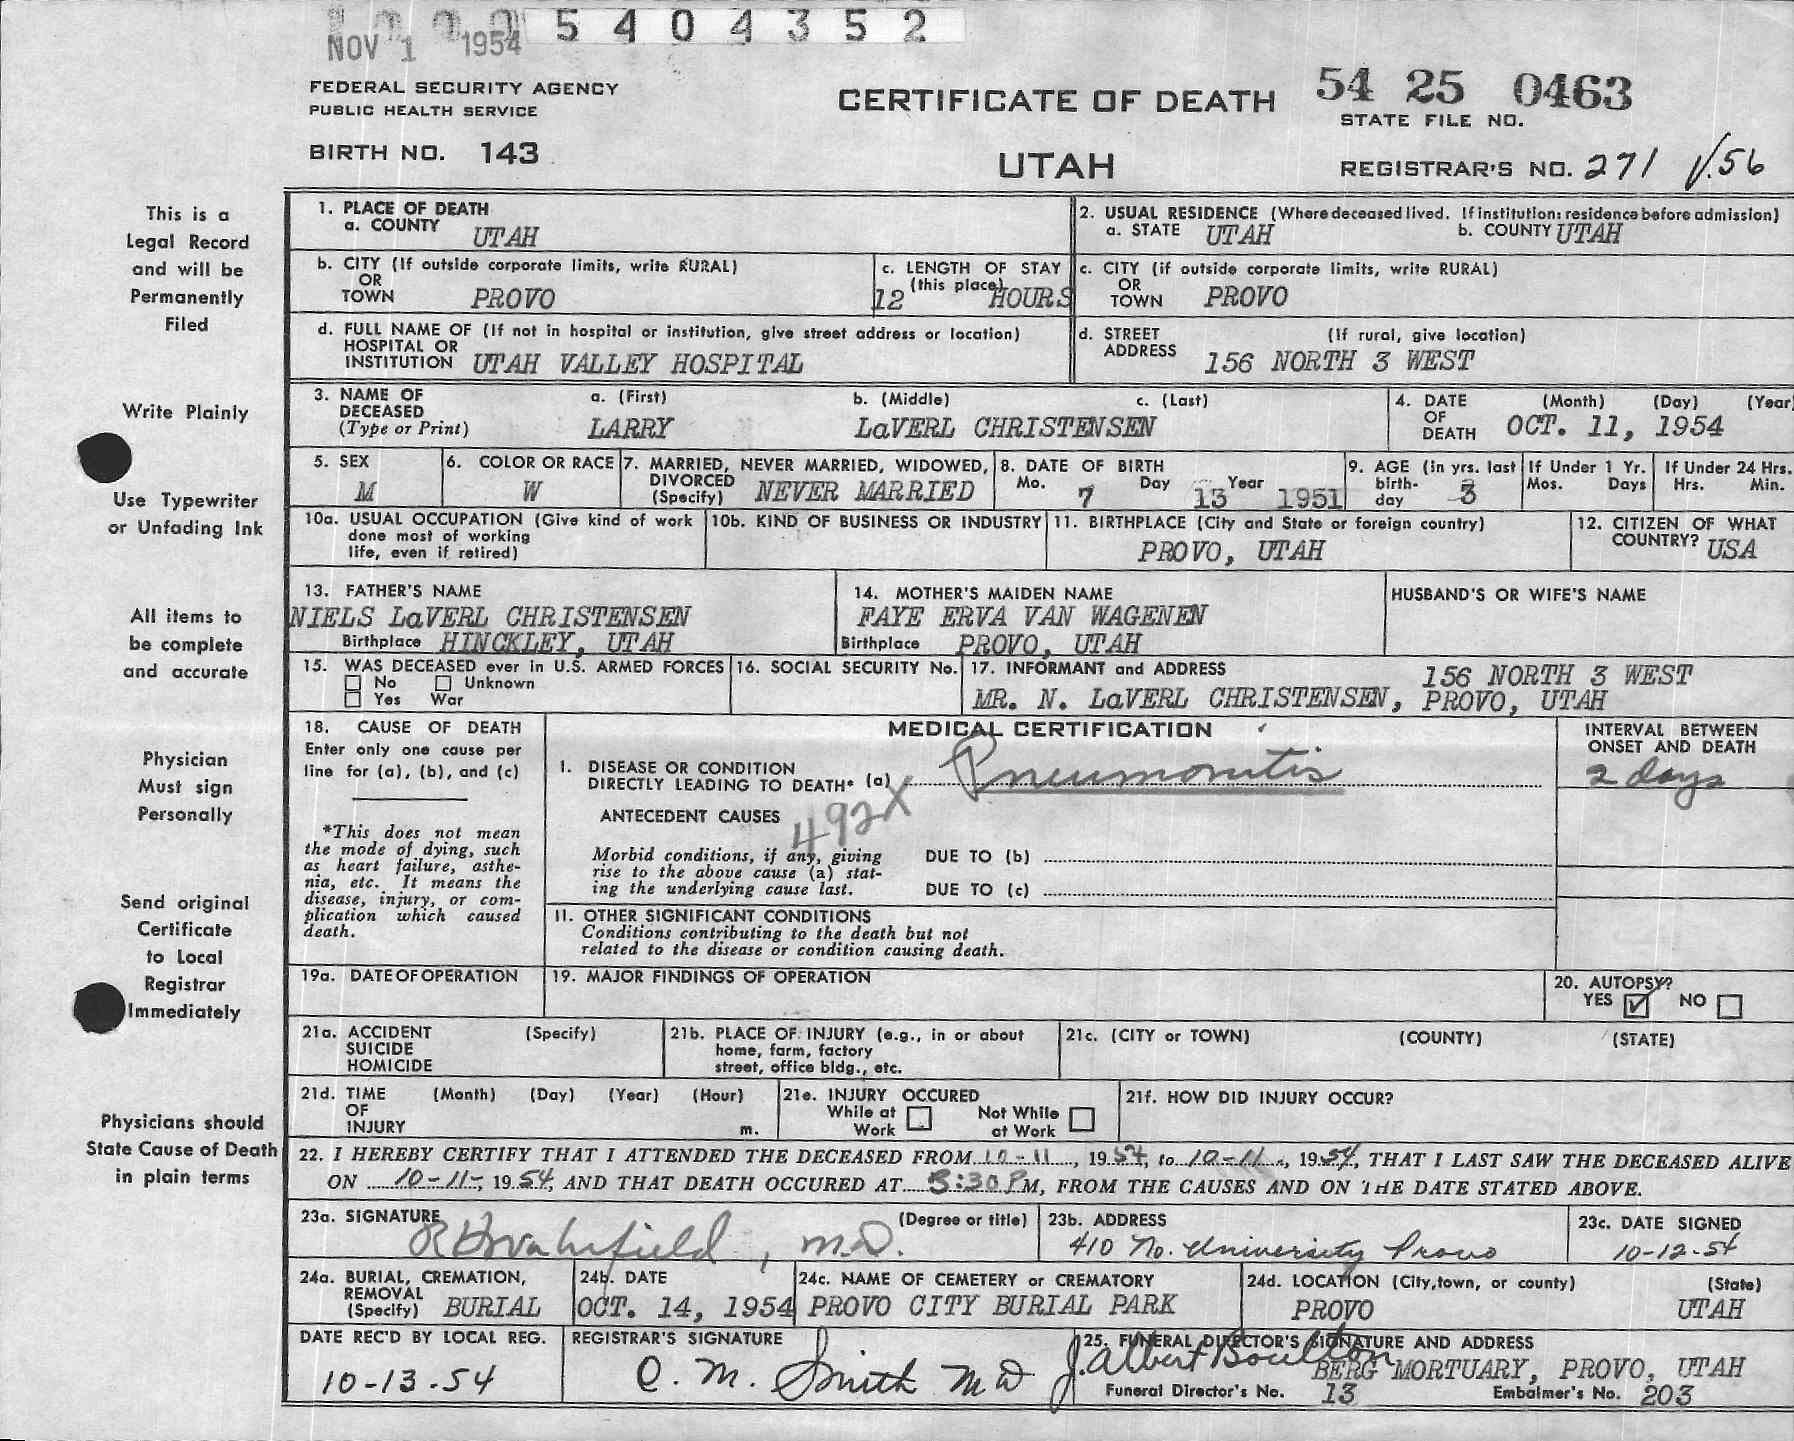 NOV 1 1954 5404352
FEDERAL SECURITY AGENCY
PUBLIC HEALTH SERVICE
BIRTH NO. 143
CERTIFICATE OF DEATH
UTAH
54 25 0463
STATE FILE NO.
REGISTRAR'S NO. 271 √.56
This is a
Legal Record
and will be
Permanently
Filed
Write Plainly
Use Typewriter
or Unfading Ink
All items to
be complete
and accurate
Physician
Must sign
Personally
Send original
Certificate
to Local
Registrar
Immediately
Physicians should
State Cause of Death
in plain terms
1. PLACE OF DEATH
a. COUNTY UTAH
2. USUAL RESIDENCE (Where deceased lived. If institution: residence before admission)
a. STATE UTAH b. COUNTY UTAH
b. CITY (If outside corporate limits, write RURAL)
OR
TOWN PROVO
c. LENGTH OF STAY
(this place)
12 HOURS
c. CITY (if outside corporate limits, write RURAL)
OR
TOWN PROVO
d. FULL NAME OF (If not in hospital or institution, give street address or location)
HOSPITAL OR
INSTITUTION UTAH VALLEY HOSPITAL
d. STREET (If rural, give location)
ADDRESS 156 NORTH 3 WEST
3. NAME OF a. (First) b. (Middle) c. (Last)
DECEASED
(Type or Print) LARRY LaVERL CHRISTENSEN
4. DATE (Month) (Day) (Year)
OF
DEATH OCT. 11, 1954
5. SEX
M
6. COLOR OR RACE
W
7. MARRIED, NEVER MARRIED, WIDOWED,
DIVORCED
(Specify) NEVER MARRIED
8. DATE OF BIRTH
Mo. 7 Day 13 Year 1951
9. AGE (in yrs. last
birth-
day 3
If Under 1 Yr.
Mos. Days
If Under 24 Hrs.
Hrs. Min.
10a. USUAL OCCUPATION (Give kind of work
done most of working
life, even if retired)
10b. KIND OF BUSINESS OR INDUSTRY
11. BIRTHPLACE (City and State or foreign country)
PROVO, UTAH
12. CITIZEN OF WHAT
COUNTRY? USA
13. FATHER'S NAME
NIELS LaVERL CHRISTENSEN
Birthplace HINCKLEY, UTAH
14. MOTHER'S MAIDEN NAME
FAYE ERVA VAN WAGENEN
Birthplace PROVO, UTAH
HUSBAND'S OR WIFE'S NAME
15. WAS DECEASED ever in U.S. ARMED FORCES
No Unknown
Yes War
16. SOCIAL SECURITY No.
17. INFORMANT and ADDRESS 156 NORTH 3 WEST
MR. N. LaVERL CHRISTENSEN, PROVO, UTAH
18. CAUSE OF DEATH
Enter only one cause per
line for (a), (b), and (c)
*This does not mean
the mode of dying, such
as heart failure, asthe-
nia, etc. It means the
disease, injury, or com-
plication which caused
death.
MEDICAL CERTIFICATION
I. DISEASE OR CONDITION
DIRECTLY LEADING TO DEATH* (a) Pneumonitis
ANTECEDENT CAUSES 492X
Morbid conditions, if any, giving
rise to the above cause (a) stat-
ing the underlying cause last.
DUE TO (b)
DUE TO (c)
INTERVAL BETWEEN
ONSET AND DEATH
2 days
II. OTHER SIGNIFICANT CONDITIONS
Conditions contributing to the death but not
related to the disease or condition causing death.
19a. DATE OF OPERATION
19. MAJOR FINDINGS OF OPERATION
20. AUTOPSY?
YES ☑ NO ☐
21a. ACCIDENT (Specify)
SUICIDE
HOMICIDE
21b. PLACE OF INJURY (e.g., in or about
home, farm, factory
street, office bldg., etc.
21c. (CITY or TOWN) (COUNTY) (STATE)
21d. TIME (Month) (Day) (Year) (Hour)
OF
INJURY m.
21e. INJURY OCCURED
While at Work Not While at Work
21f. HOW DID INJURY OCCUR?
22. I HEREBY CERTIFY THAT I ATTENDED THE DECEASED FROM 10-11, 1954, to 10-11, 1954, THAT I LAST SAW THE DECEASED ALIVE
ON 10-11-, 1954, AND THAT DEATH OCCURED AT 3:30 PM, FROM THE CAUSES AND ON THE DATE STATED ABOVE.
23a. SIGNATURE (Degree or title)
M.D.
23b. ADDRESS
410 No. University Provo
23c. DATE SIGNED
10-12-54
24a. BURIAL, CREMATION,
REMOVAL
(Specify) BURIAL
24b. DATE
OCT. 14, 1954
24c. NAME OF CEMETERY or CREMATORY
PROVO CITY BURIAL PARK
24d. LOCATION (City, town, or county) (State)
PROVO UTAH
DATE REC'D BY LOCAL REG.
10-13-54
REGISTRAR'S SIGNATURE
C. M. Smith MD
25. FUNERAL DIRECTOR'S SIGNATURE AND ADDRESS
J. Albert Boulton BERG MORTUARY, PROVO, UTAH
Funeral Director's No. 13 Embalmer's No. 203